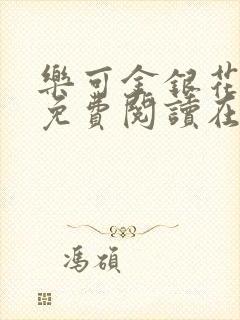 樂可金銀花
免費閱讀在
馮碩